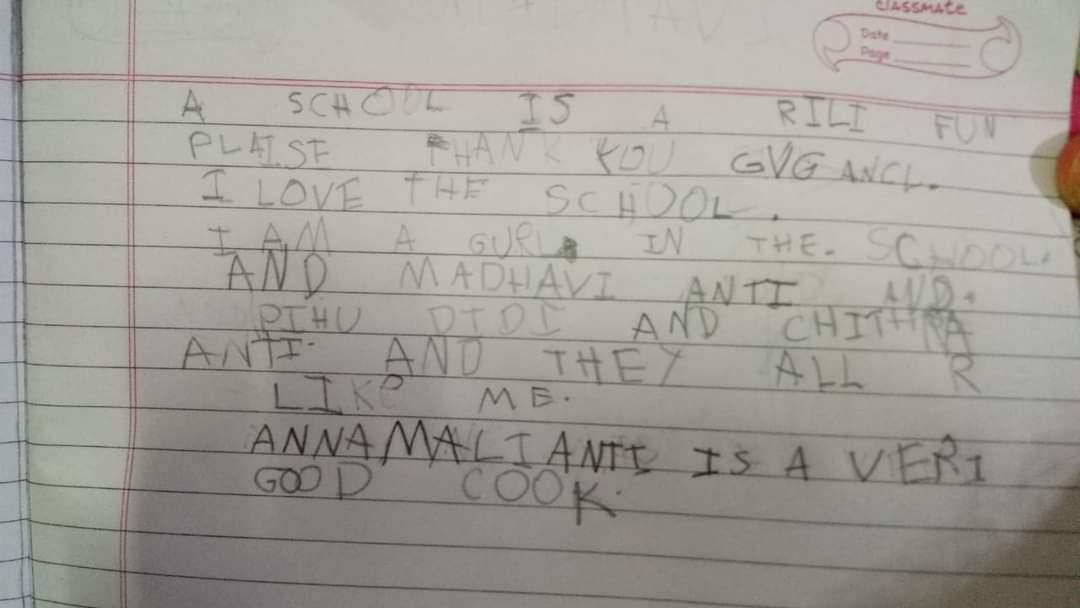 CLASSMATE
Date
Page
A SCHOOL IS A RILI FUN
PLAISE THANK YOU GVG ANCL.
I LOVE THE SCHOOL.
I AM A GURL IN THE. SCHOOL.
AND MADHAVI ANTI AND.
PIHU DIDI AND CHITHRA
ANTI. AND THEY ALL R
LIKE ME.
ANNAMALI ANTI IS A VERI
GOOD COOK.